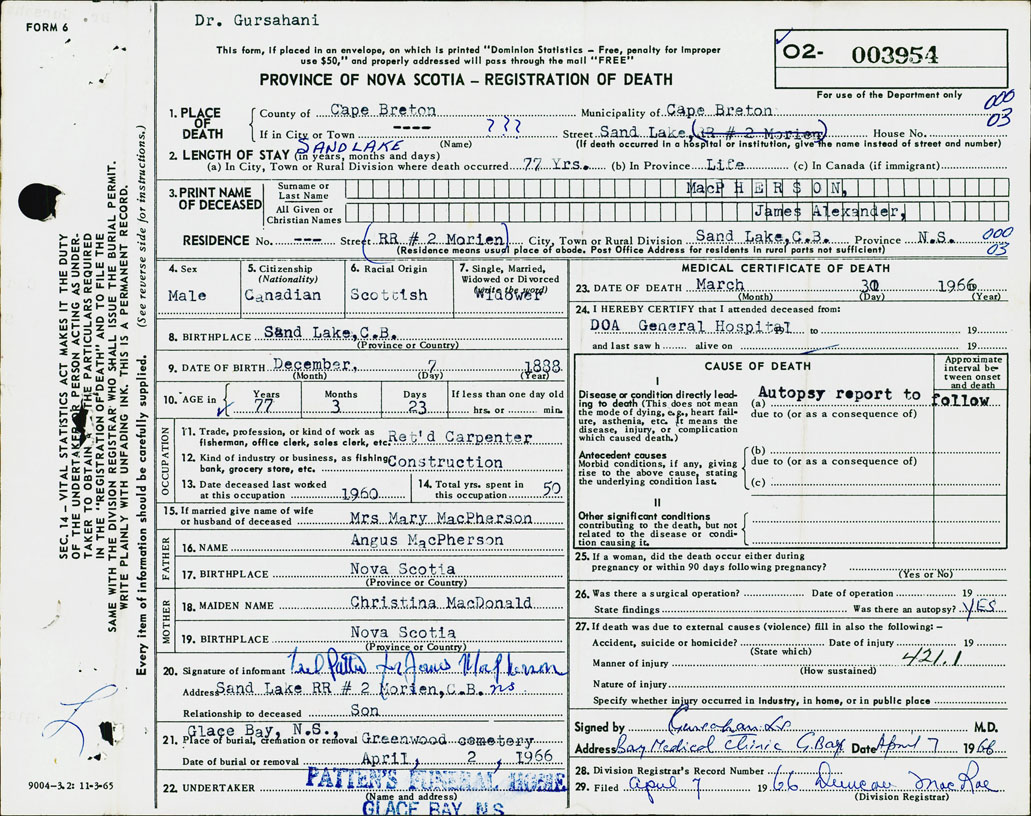 FORM 6
Dr. Gursahani
This form, if placed in an envelope, on which is printed "Dominion Statistics – Free, penalty for improper
use $50," and properly addressed will pass through the mail "FREE"
PROVINCE OF NOVA SCOTIA – REGISTRATION OF DEATH
O2- 003954
For use of the Department only
000
03
1. PLACE OF DEATH
County of Cape Breton Municipality of Cape Breton
If in City or Town ---- ??? Street Sand Lake, (RR # 2 Morien) House No.
SAND LAKE (Name) (If death occurred in a hospital or institution, give the name instead of street and number)
2. LENGTH OF STAY (in years, months and days)
(a) In City, Town or Rural Division where death occurred 77 Yrs. (b) In Province Life (c) In Canada (if immigrant)
3. PRINT NAME OF DECEASED
Surname or Last Name MacPHERSON,
All Given or Christian Names James Alexander,
RESIDENCE No. --- Street (RR # 2 Morien) City, Town or Rural Division Sand Lake, C.B. Province N.S. 000
03
(Residence means usual place of abode. Post Office Address for residents in rural parts not sufficient)
4. Sex
Male
5. Citizenship
(Nationality)
Canadian
6. Racial Origin
Scottish
7. Single, Married,
Widowed or Divorced
(write the word)
Widower
8. BIRTHPLACE Sand Lake, C.B.
(Province or Country)
9. DATE OF BIRTH December, 7 1888
(Month) (Day) (Year)
10. AGE in Years Months Days If less than one day old
77 3 23 hrs. or min.
OCCUPATION
11. Trade, profession, or kind of work as
fisherman, office clerk, sales clerk, etc. Ret'd Carpenter
12. Kind of industry or business, as fishing
bank, grocery store, etc. Construction
13. Date deceased last worked
at this occupation 1960
14. Total yrs. spent in
this occupation 50
15. If married give name of wife
or husband of deceased Mrs Mary MacPherson
FATHER
16. NAME Angus MacPherson
17. BIRTHPLACE Nova Scotia
(Province or Country)
MOTHER
18. MAIDEN NAME Christina MacDonald
19. BIRTHPLACE Nova Scotia
(Province or Country)
20. Signature of informant for James MacPherson
Address Sand Lake RR # 2 Morien, C.B. NS.
Relationship to deceased Son
Glace Bay, N.S.,
21. Place of burial, cremation or removal Greenwood cemetery
Date of burial or removal April, 2, 1966
22. UNDERTAKER PATTEN'S FUNERAL HOME
(Name and address)
GLACE BAY, N.S.
MEDICAL CERTIFICATE OF DEATH
23. DATE OF DEATH March 30 1966
(Month) (Day) (Year)
24. I HEREBY CERTIFY that I attended deceased from:
DOA General Hospital to 19
and last saw h alive on 19
CAUSE OF DEATH
Approximate
interval be-
tween onset
and death
I
Disease or condition directly lead-
ing to death (This does not mean
the mode of dying, e.g., heart fail-
ure, asthenia, etc. It means the
disease, injury, or complication
which caused death.)
(a) Autopsy report to follow
due to (or as a consequence of)
Antecedent causes
Morbid conditions, if any, giving
rise to the above cause, stating
the underlying condition last.
(b)
due to (or as a consequence of)
(c)
II
Other significant conditions
contributing to the death, but not
related to the disease or condi-
tion causing it.
25. If a woman, did the death occur either during
pregnancy or within 90 days following pregnancy?
(Yes or No)
26. Was there a surgical operation? Date of operation 19
State findings Was there an autopsy? YES
27. If death was due to external causes (violence) fill in also the following: –
Accident, suicide or homicide? Date of injury 19
(State which)
Manner of injury 421.1
(How sustained)
Nature of injury
Specify whether injury occurred in industry, in home, or in public place
Signed by M.D.
Address Bay Medical Clinic G. Bay Date April 7 1966
28. Division Registrar's Record Number
29. Filed April 7 1966 Duncan MacRae
(Division Registrar)
SEC. 14 – VITAL STATISTICS ACT MAKES IT THE DUTY
OF THE UNDERTAKER OR PERSON ACTING AS UNDER-
TAKER TO OBTAIN THE PARTICULARS REQUIRED
IN THE "REGISTRATION OF DEATH" AND TO FILE THE
SAME WITH THE DIVISION REGISTRAR WHO SHALL ISSUE THE BURIAL PERMIT.
WRITE PLAINLY WITH UNFADING INK. THIS IS A PERMANENT RECORD.
Every item of information should be carefully supplied. (See reverse side for instructions.)
9004-3.2: 11-3-65